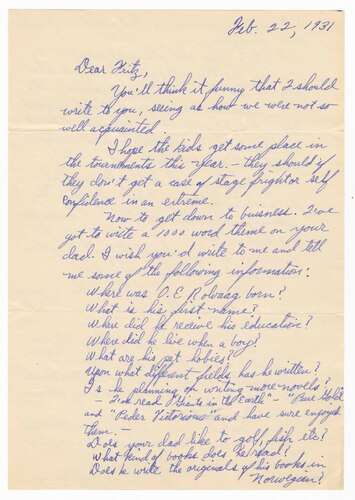 Feb. 22, 1931
Dear Fritz,
You'll think it funny that I should
write to you, seeing as how we were not so
well acquainted.
I hope the kids get some place in
the tournaments this year. - they should if
they don't get a case of stage fright or self
confidence in an extreme.
Now to get down to buisness. I've
got to write a 1000 word theme on your
dad. I wish you'd write to me and tell
me some of the following information:
Where was O. E Rolvaag born?
What is his first name?
Where did he receive his education?
Where did he live when a boy?
What are his pet hobies?
Upon what different fields has he written?
Is he planning on writing more novels?
- I've read "Giants in the Earth" - "Pure Gold
and "Peder Victorious" and have sure enjoyed
them. -
Does your dad like to golf, fish etc?
What kind of books does he read?
Does he write the originals of his books in
Norwegian?